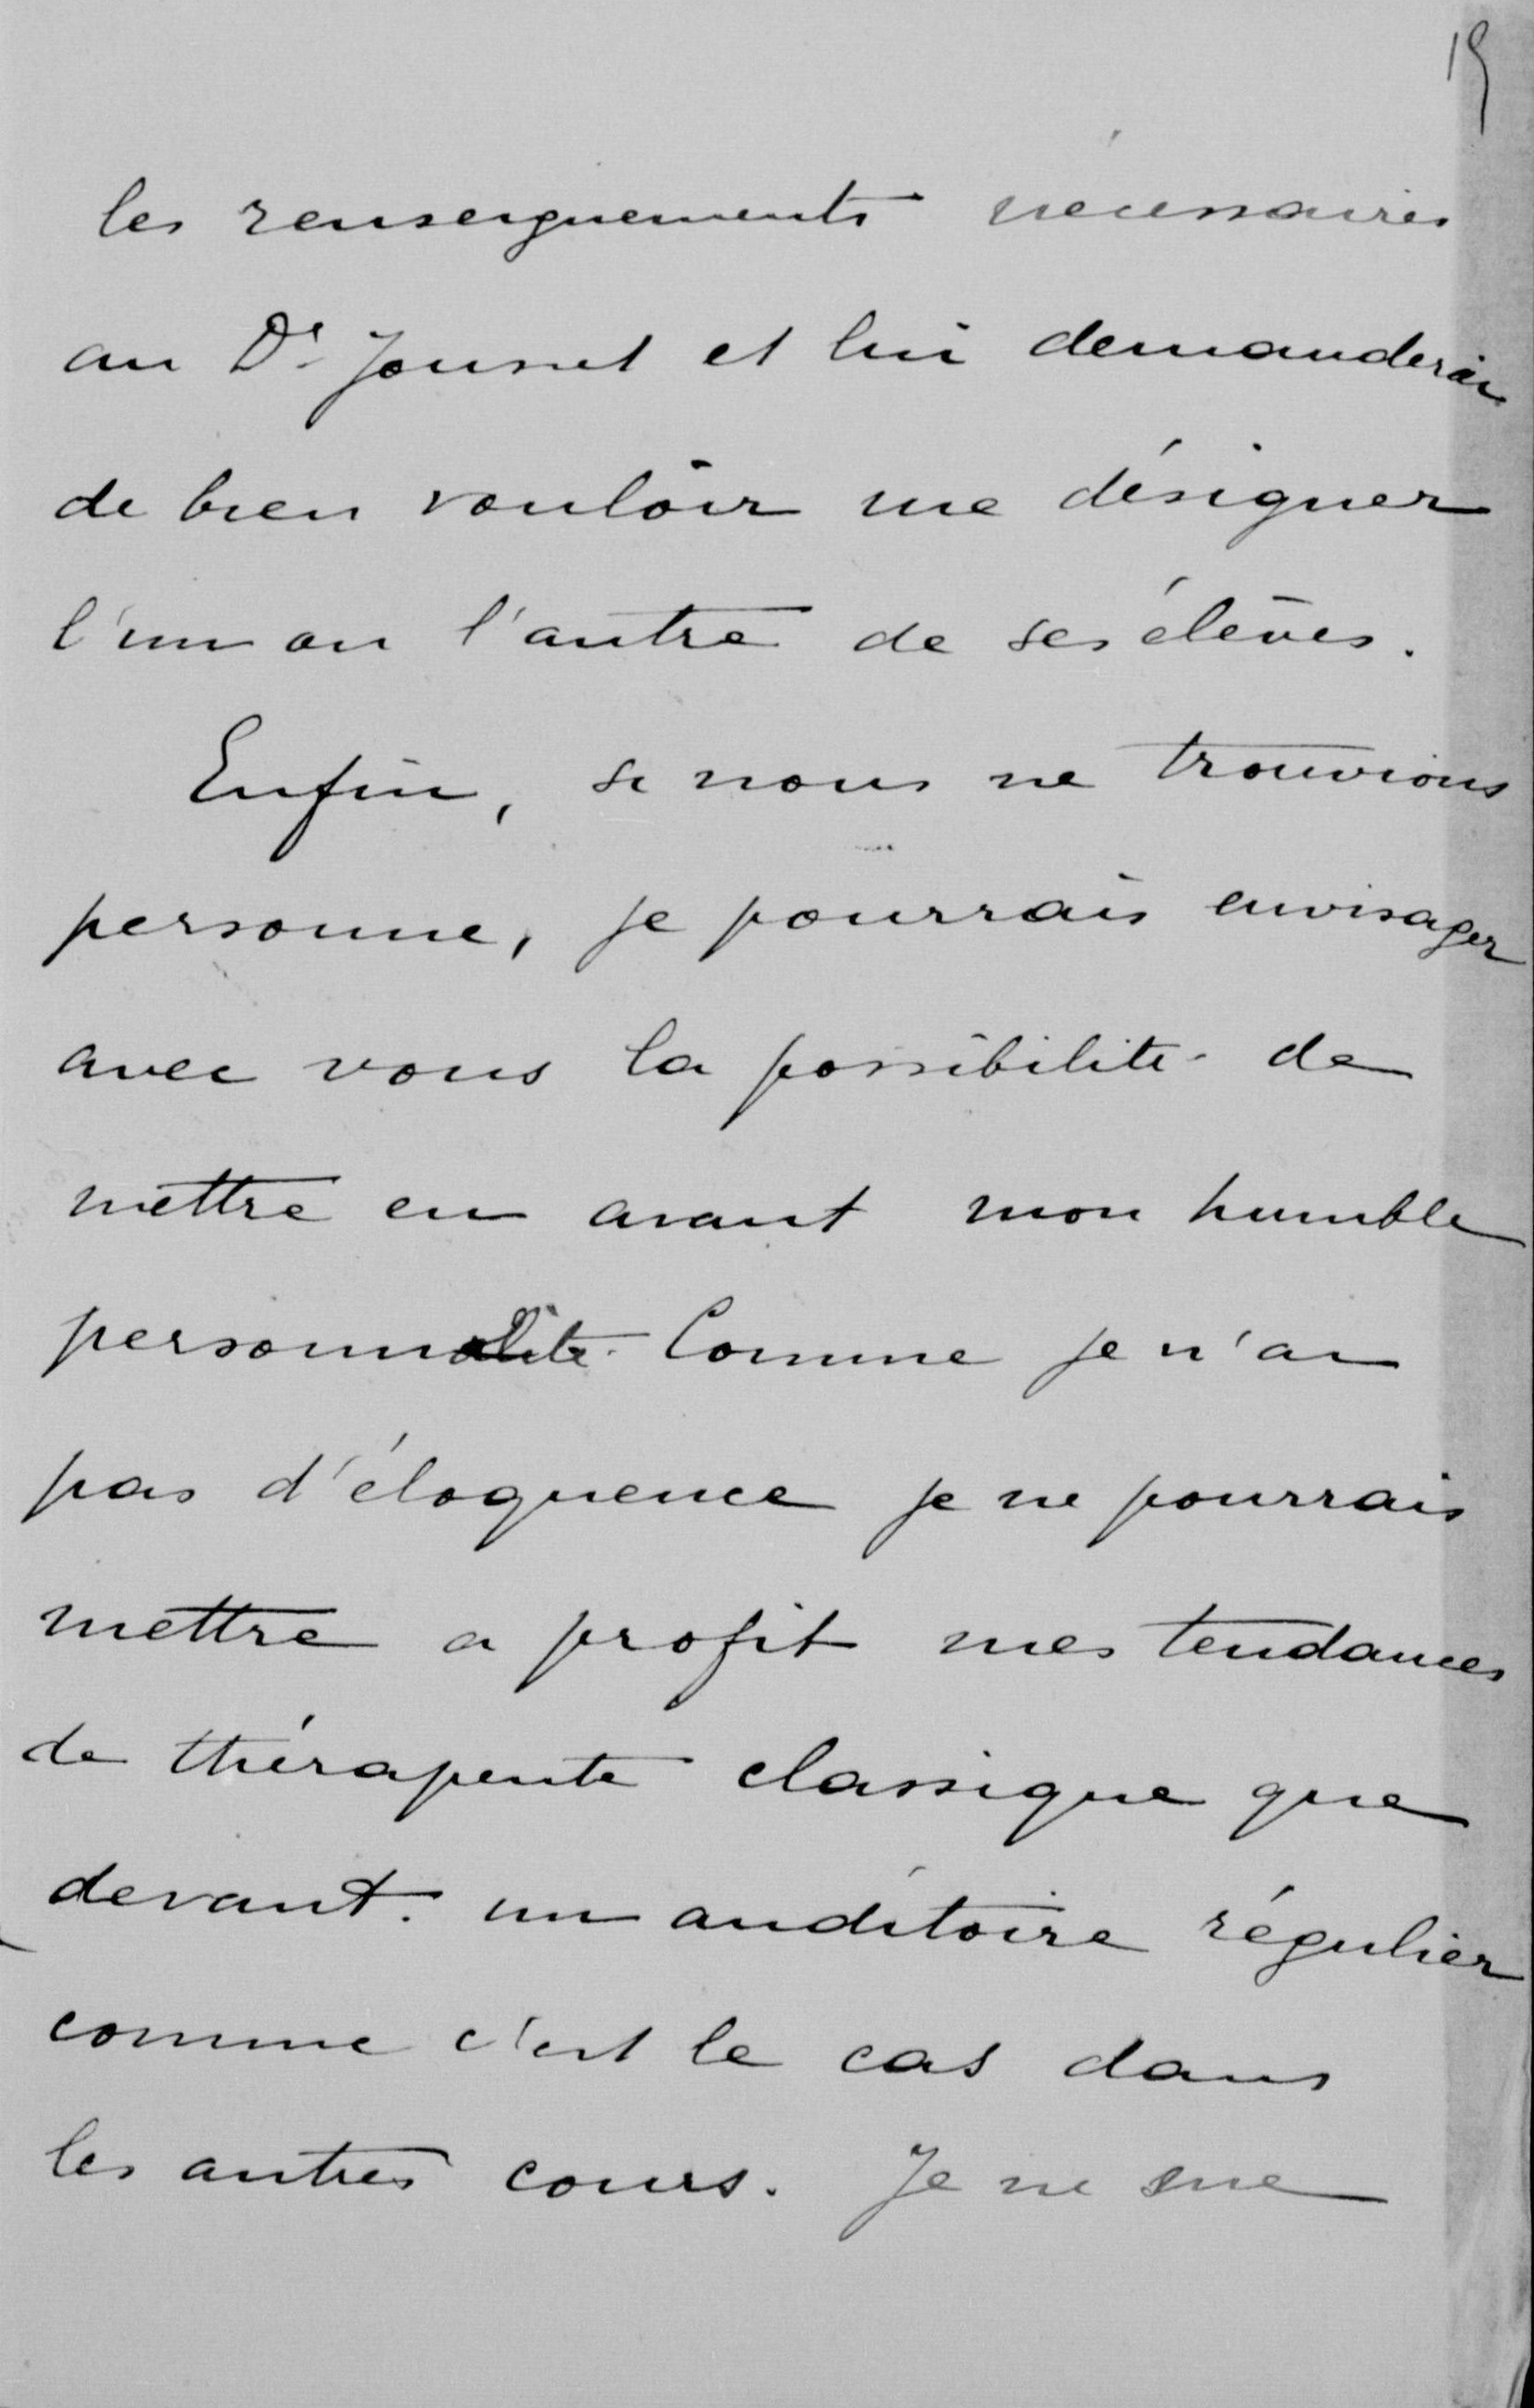 19
les renseignements nécessaires
au Dr Jousset et lui demanderai
de bien vouloir me désigner
l'un ou l'autre de ses élèves.
Enfin, si nous ne trouvions
personne, je pourrais envisager
avec vous la possibilité de
mettre en avant mon humble
personnalité. Comme je n'ai
pas d'éloquence je ne pourrais
mettre a profit mes tendances
de thérapeute classique que
devant un auditoire régulier
comme c'est le cas dans
les autres cours. Je ne me